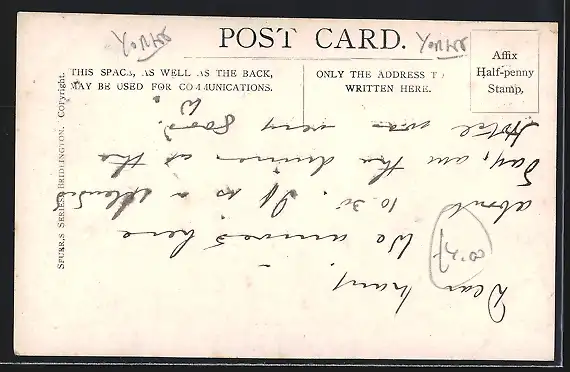 Yorks
POST CARD.
Yorks
THIS SPACE, AS WELL AS THE BACK,
MAY BE USED FOR COMMUNICATIONS.
ONLY THE ADDRESS T
WRITTEN HERE.
Affix
Half-penny
Stamp.
SPURR,S SERIES, BRIDLINGTON. Copyright.
Dear
We arrived here
about 10.30. It is a splendid
Day, am the dinner at the
Hotel was very good.
W